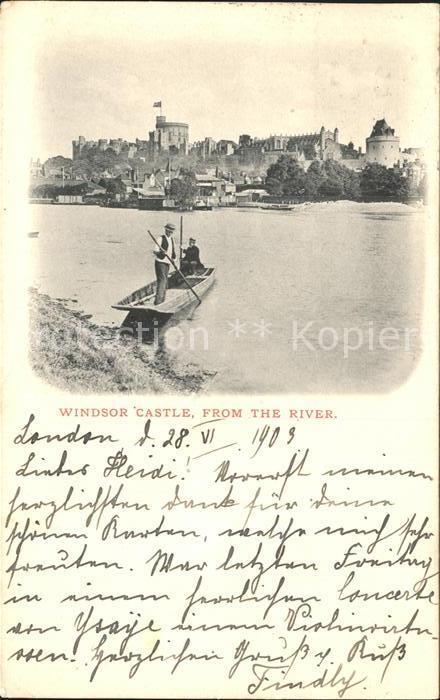 WINDSOR CASTLE, FROM THE RIVER.
London d. 28. VI. 1903
Liebes Heidi! Vorerst meinen
herzlichsten Dank für deine
schönen Karten, welche mich sehr
freuten. War letzten Freitag
in einem herrlichen Concerte
von Ysaÿe einem Violinvirtu
osen. Herzlichen Gruß u. Kuß